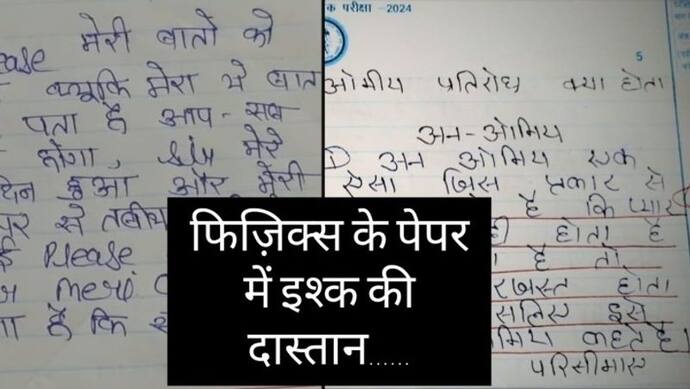 ease मेरी बातो को
क्यूकि मेरा ये बात
पता है आप-सब
होगा, sir मेरे
दिन हुआ और मेरी
पर से तबीय
Please
mera
है कि
क परीक्षा -2024
5
ओमीय प्रतिरोध क्या होता
अन-ओमिय
① अन ओमिय एक
ऐसा जिस प्रकार से
है कि प्यार
ही होता है
है तो
होता
इसे
मिय कहते है।
परिसीमाए
फिज़िक्स के पेपर
में इश्क की
दास्तान......